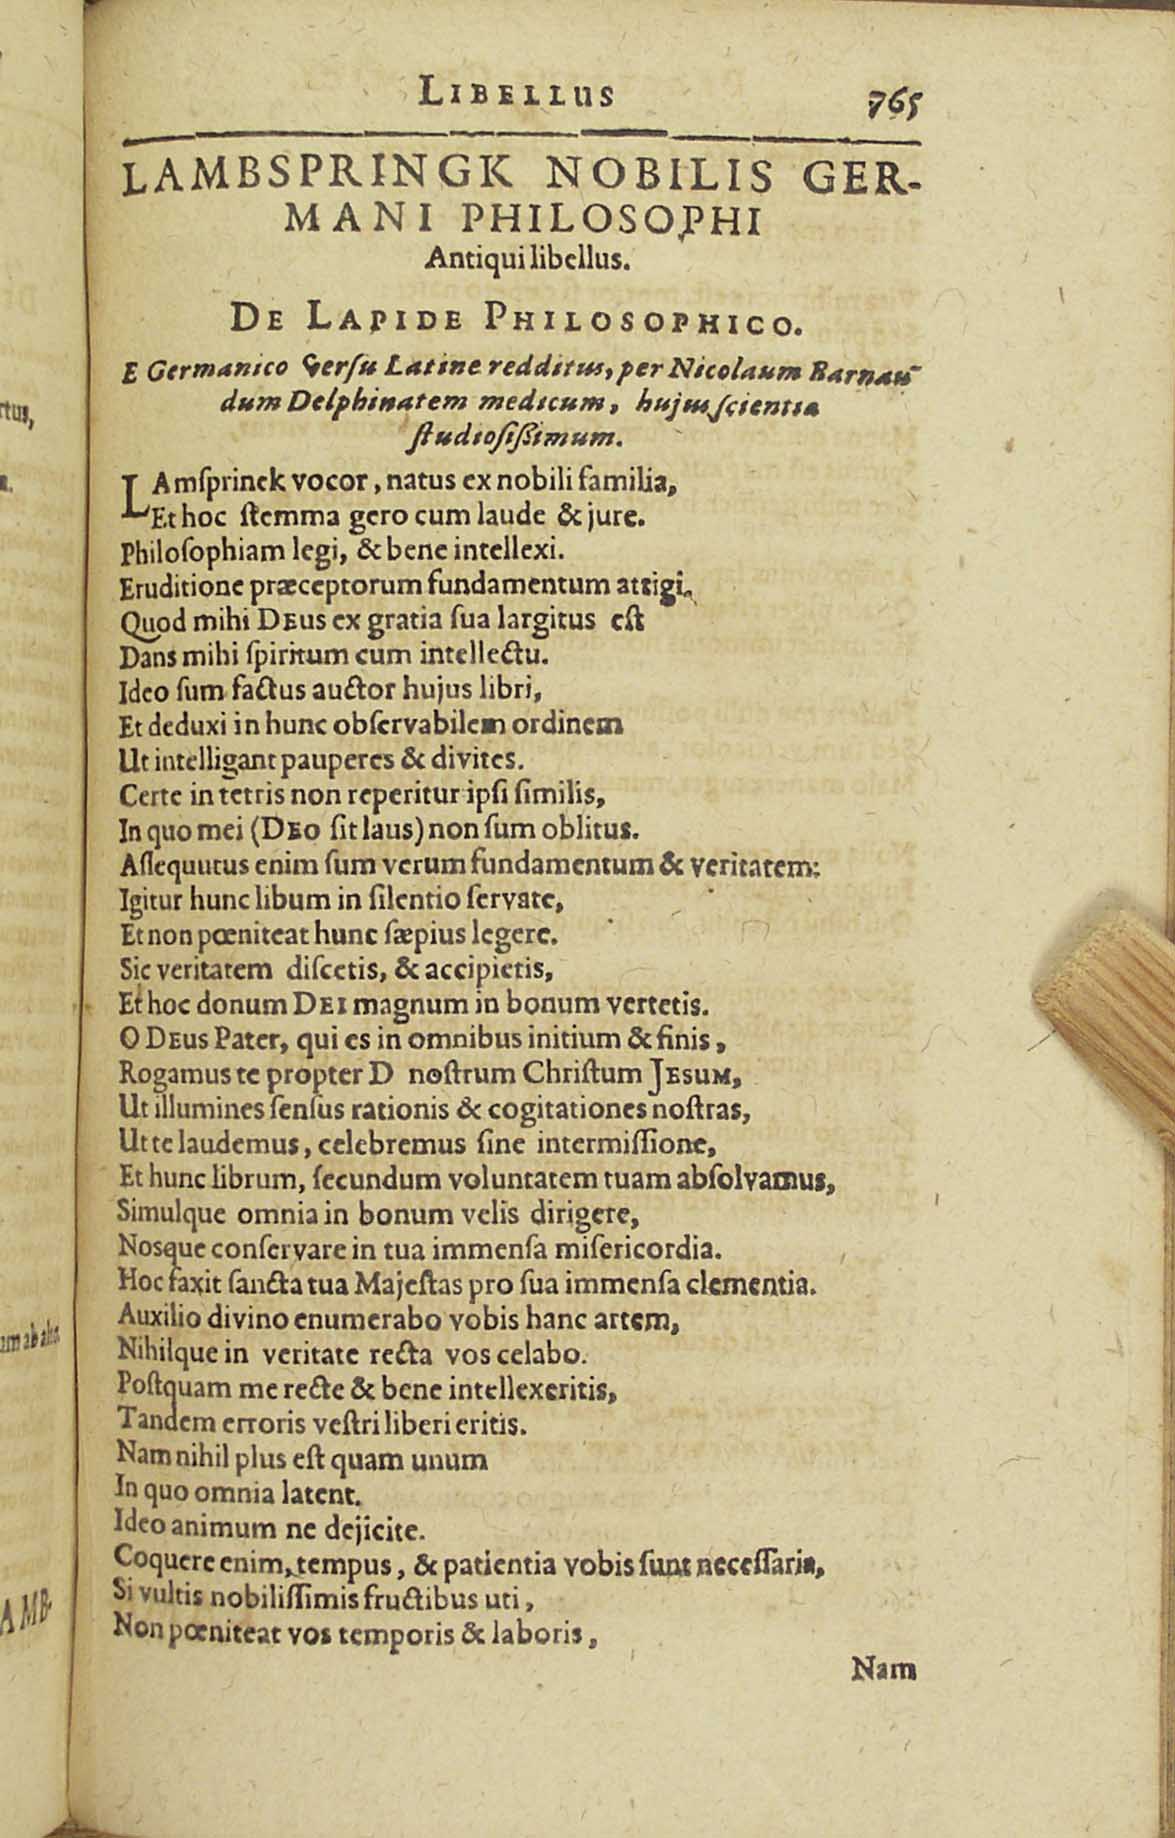 LIBELLUS 765
LAMBSPRINGK NOBILIS GER-
MANI PHILOSOPHI
Antiqui libellus.
DE LAPIDE PHILOSOPHICO.
E Germanico versu Latine redditus, per Nicolaum Barnau-
dum Delphinatem medicum, hujus scientia
ſtudioſiſſimum.
LAmſprinck vocor, natus ex nobili familia,
Et hoc ſtemma gero cum laude & jure.
Philoſophiam legi, & bene intellexi.
Eruditione præceptorum fundamentum attigi.
Quod mihi DEus ex gratia ſua largitus eſt
Dans mihi ſpiritum cum intellectu.
Ideo ſum factus auctor hujus libri,
Et deduxi in hunc obſervabilem ordinem
Ut intelligant pauperes & divites.
Certe in tetris non reperitur ipſi ſimilis,
In quo mei (DEO ſit laus) non ſum oblitus.
Aſſequutus enim ſum verum fundamentum & veritatem:
Igitur hunc libum in ſilentio ſervate,
Et non pœniteat hunc ſæpius legere.
Sic veritatem diſcetis, & accipietis,
Et hoc donum DEI magnum in bonum vertetis.
O DEus Pater, qui es in omnibus initium & finis,
Rogamus te propter D noſtrum Chriſtum JESUM,
Ut illumines ſenſus rationis & cogitationes noſtras,
Ut te laudemus, celebremus ſine intermiſſione,
Et hunc librum, ſecundum voluntatem tuam abſolvamus,
Simulque omnia in bonum velis dirigere,
Nosque conſervare in tua immenſa miſericordia.
Hoc faxit ſancta tua Majeſtas pro ſua immenſa clementia.
Auxilio divino enumerabo vobis hanc artem,
Nihilque in veritate recta vos celabo.
Poſtquam me recte & bene intellexeritis,
Tandem erroris veſtri liberi eritis.
Nam nihil plus eſt quam unum
In quo omnia latent.
Ideo animum ne dejicite.
Coquere enim, tempus, & patientia vobis ſunt neceſſaria,
Si vultis nobiliſſimis fructibus uti,
Non pœniteat vos temporis & laboris,
Nam